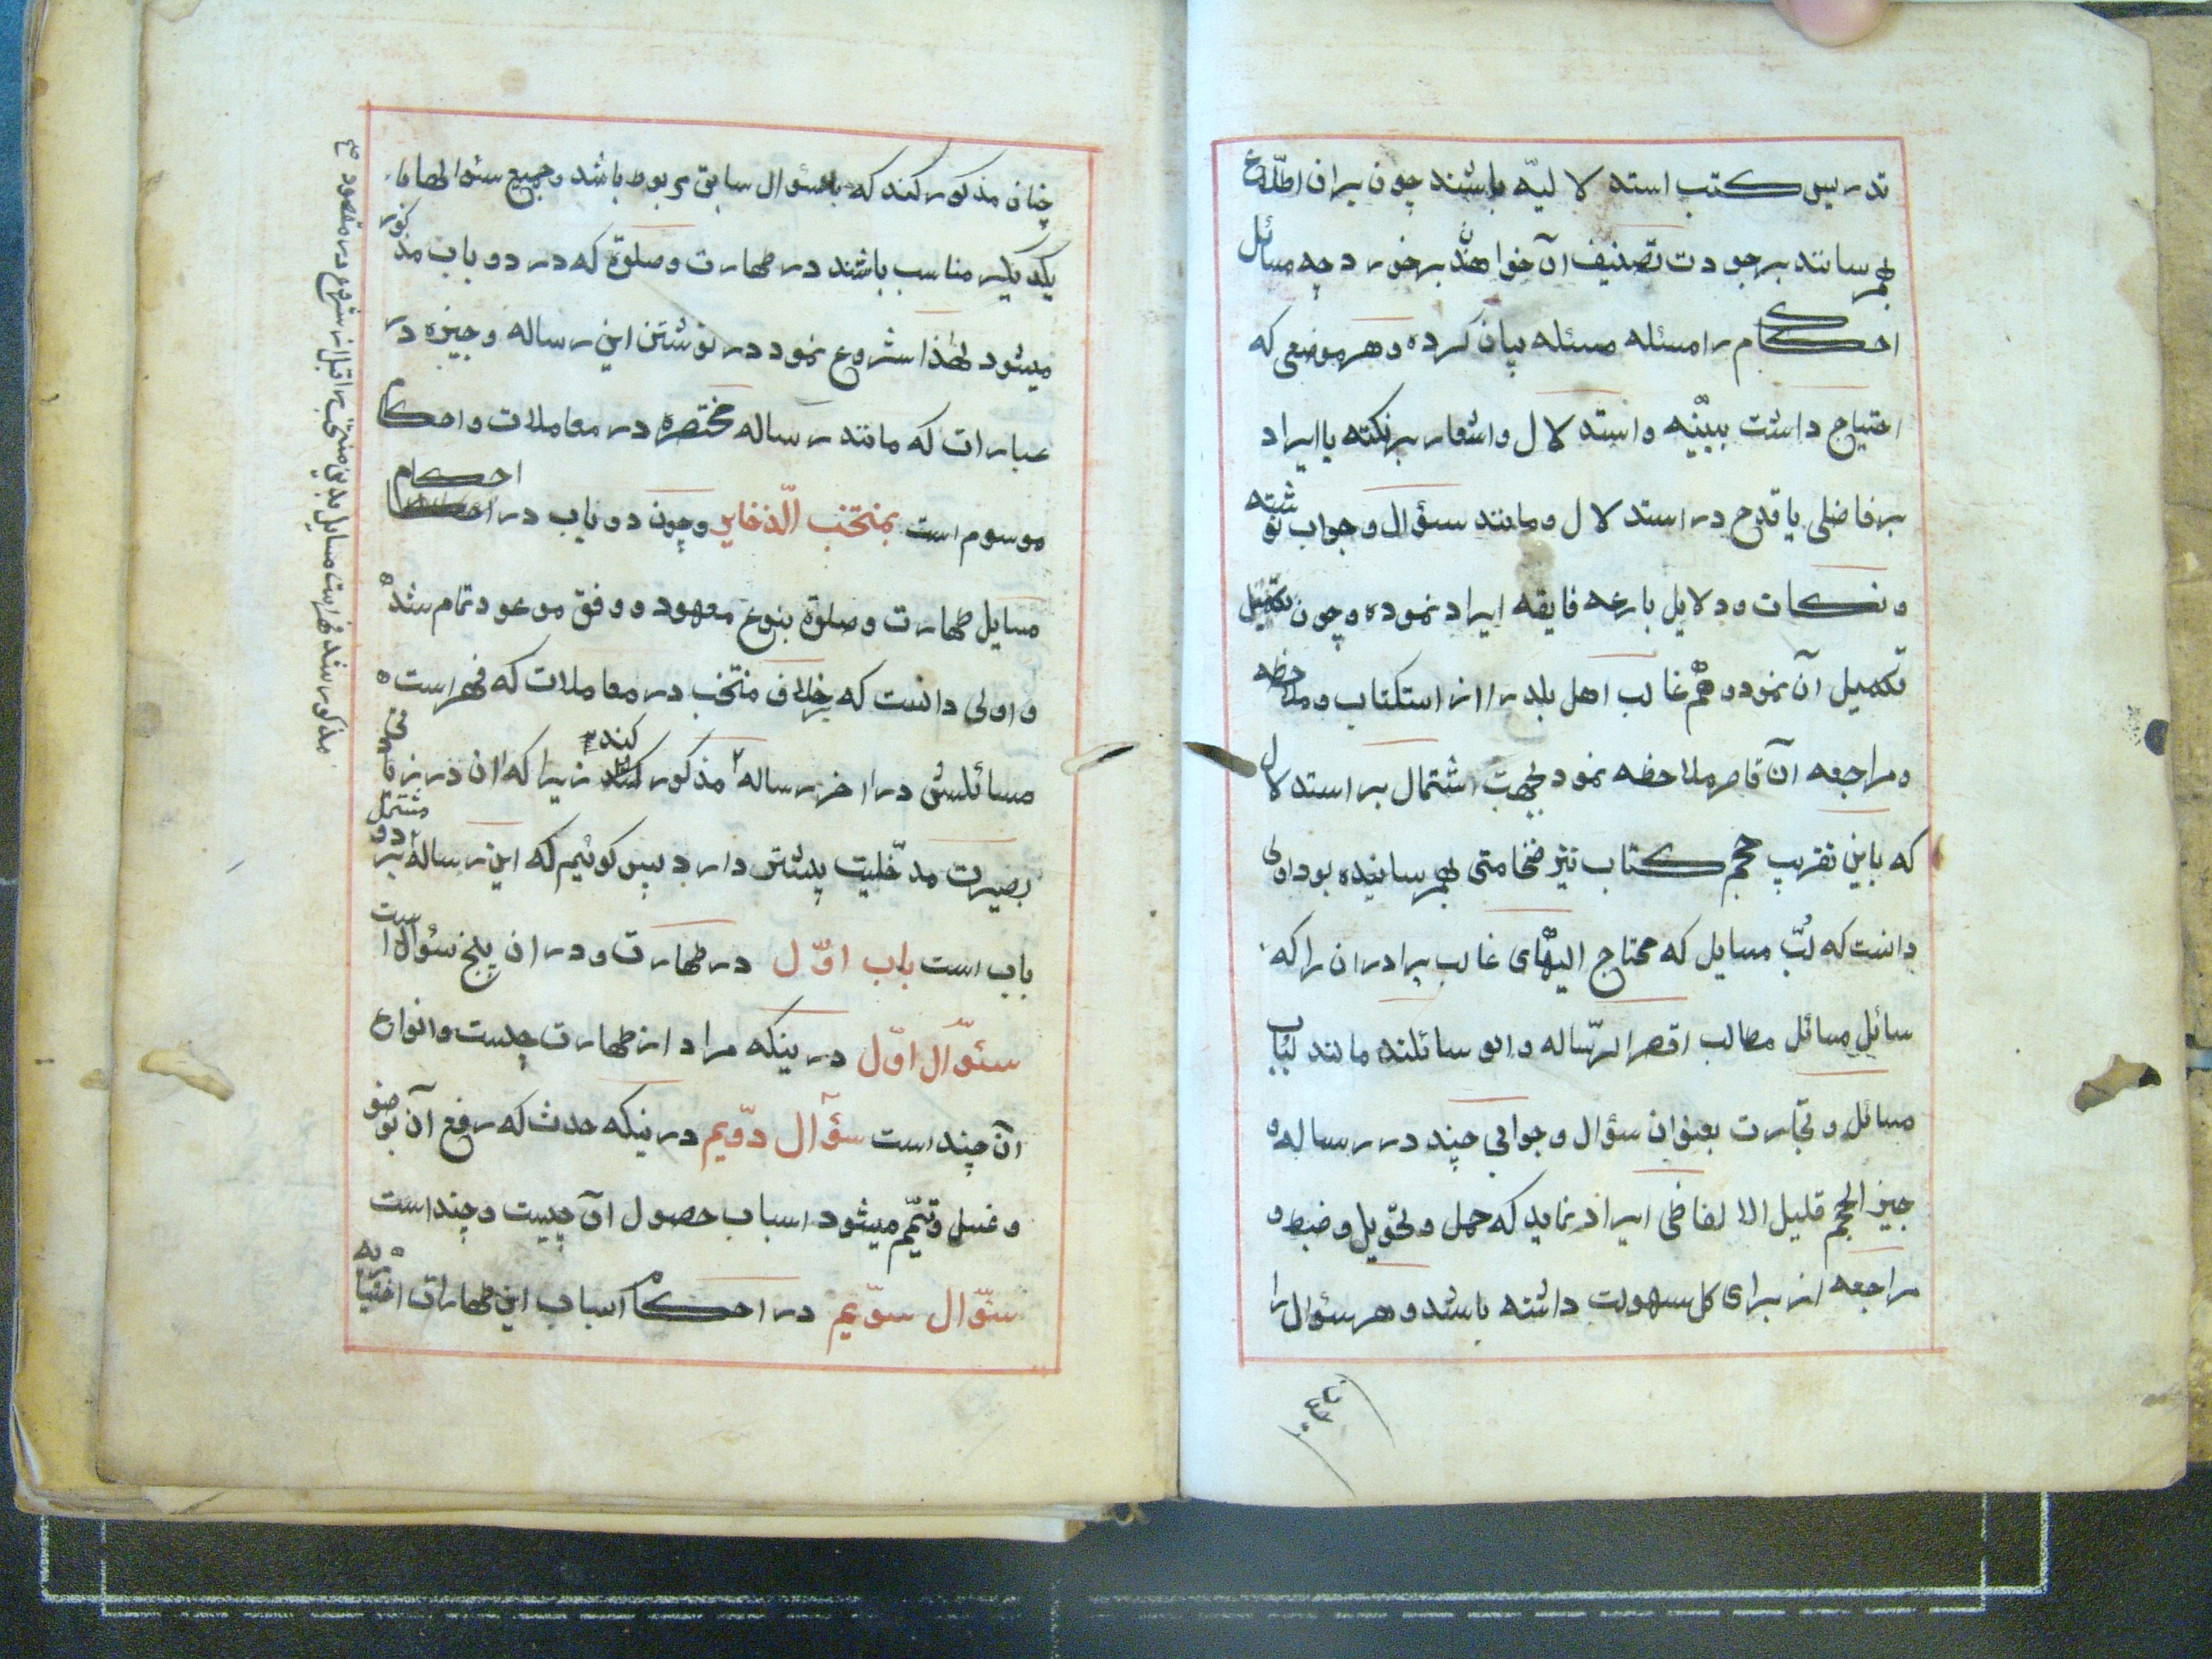 تدریس کتب استدلالیّه باشند چون بران اطّلاع
بهم رسانند بر جودت تصنیف آن خواهند برخورد چه مسائل
احکام را مسئله مسئله بیان کرده و هر موضعی که
احتیاج داشت ببیّنه و استدلال و اشعار بر نکته یا ایراد
بر فاضلی یا قدح در استدلال و مانند سؤال و جواب نوشته
و نکات و دلایل بارعه فایقه ایراد نموده و چون
تکمیل آن نمود و همم غالب اهل بلد را از استکتاب و ملاحظه
و مراجعه آن قاصر ملاحظه نمود بجهت اشتمال بر استدلال
که باین تقریب حجم کتاب نیز ضخامتی بهم رسانیده بود اولی
دانست که لُبّ مسایل که محتاج الیهای غالب برادران را که
سائل مسائل مطالب اقصر الرّساله و اند مانند لباب
مسائل و تجارت بعنوان سؤال و جوابی چند در رساله
جیز الحجم قلیل الالفاظی ایراد نماید که حمل و تحویل و ضبط و
مراجعه از برای کل سهولت داشته باشد و هر سؤال را
چنان
چنان مذکور کند که با سؤال سابق مربوط باشد و جمیع سئوالها با
یکدیگر مناسب باشند در طهارت و صلوة که در دو باب مذکور
میشود لهذا شروع نمود در نوشتن این رساله وجیزه در
عبارات که مانند رساله مختصره در معاملات و احکام
موسوم است بمنتخب الّذخایر و چون دو باب در احکام
مسایل طهارت و صلوة بنوع معهود و وفق موعود تمام شد
و اولی دانست که بر خلاف منتخب در معاملات که فهرست
مسائلش در اخر رساله مذکور کند زیرا که ان در
بصیرت مدخلیّت بیشتر دارد پس کوئیم که این رساله مشتمل بر دو
باب است باب اوّل در طهارت و در ان پنج سئوال است
سئوال اوّل درینکه مراد از طهارت چیست و انواع
آن چند است سؤال دوّیم درینکه حدث که رفع آن بوضو
و غسل و تیمّم میشود اسباب حصول آن چیست و چند است
سئوال سوّیم در احکام اسباب این طهارات اختیاریه
مذکور سند فهرست مسایل بدین منتخب را قبل از شروع در مقصود